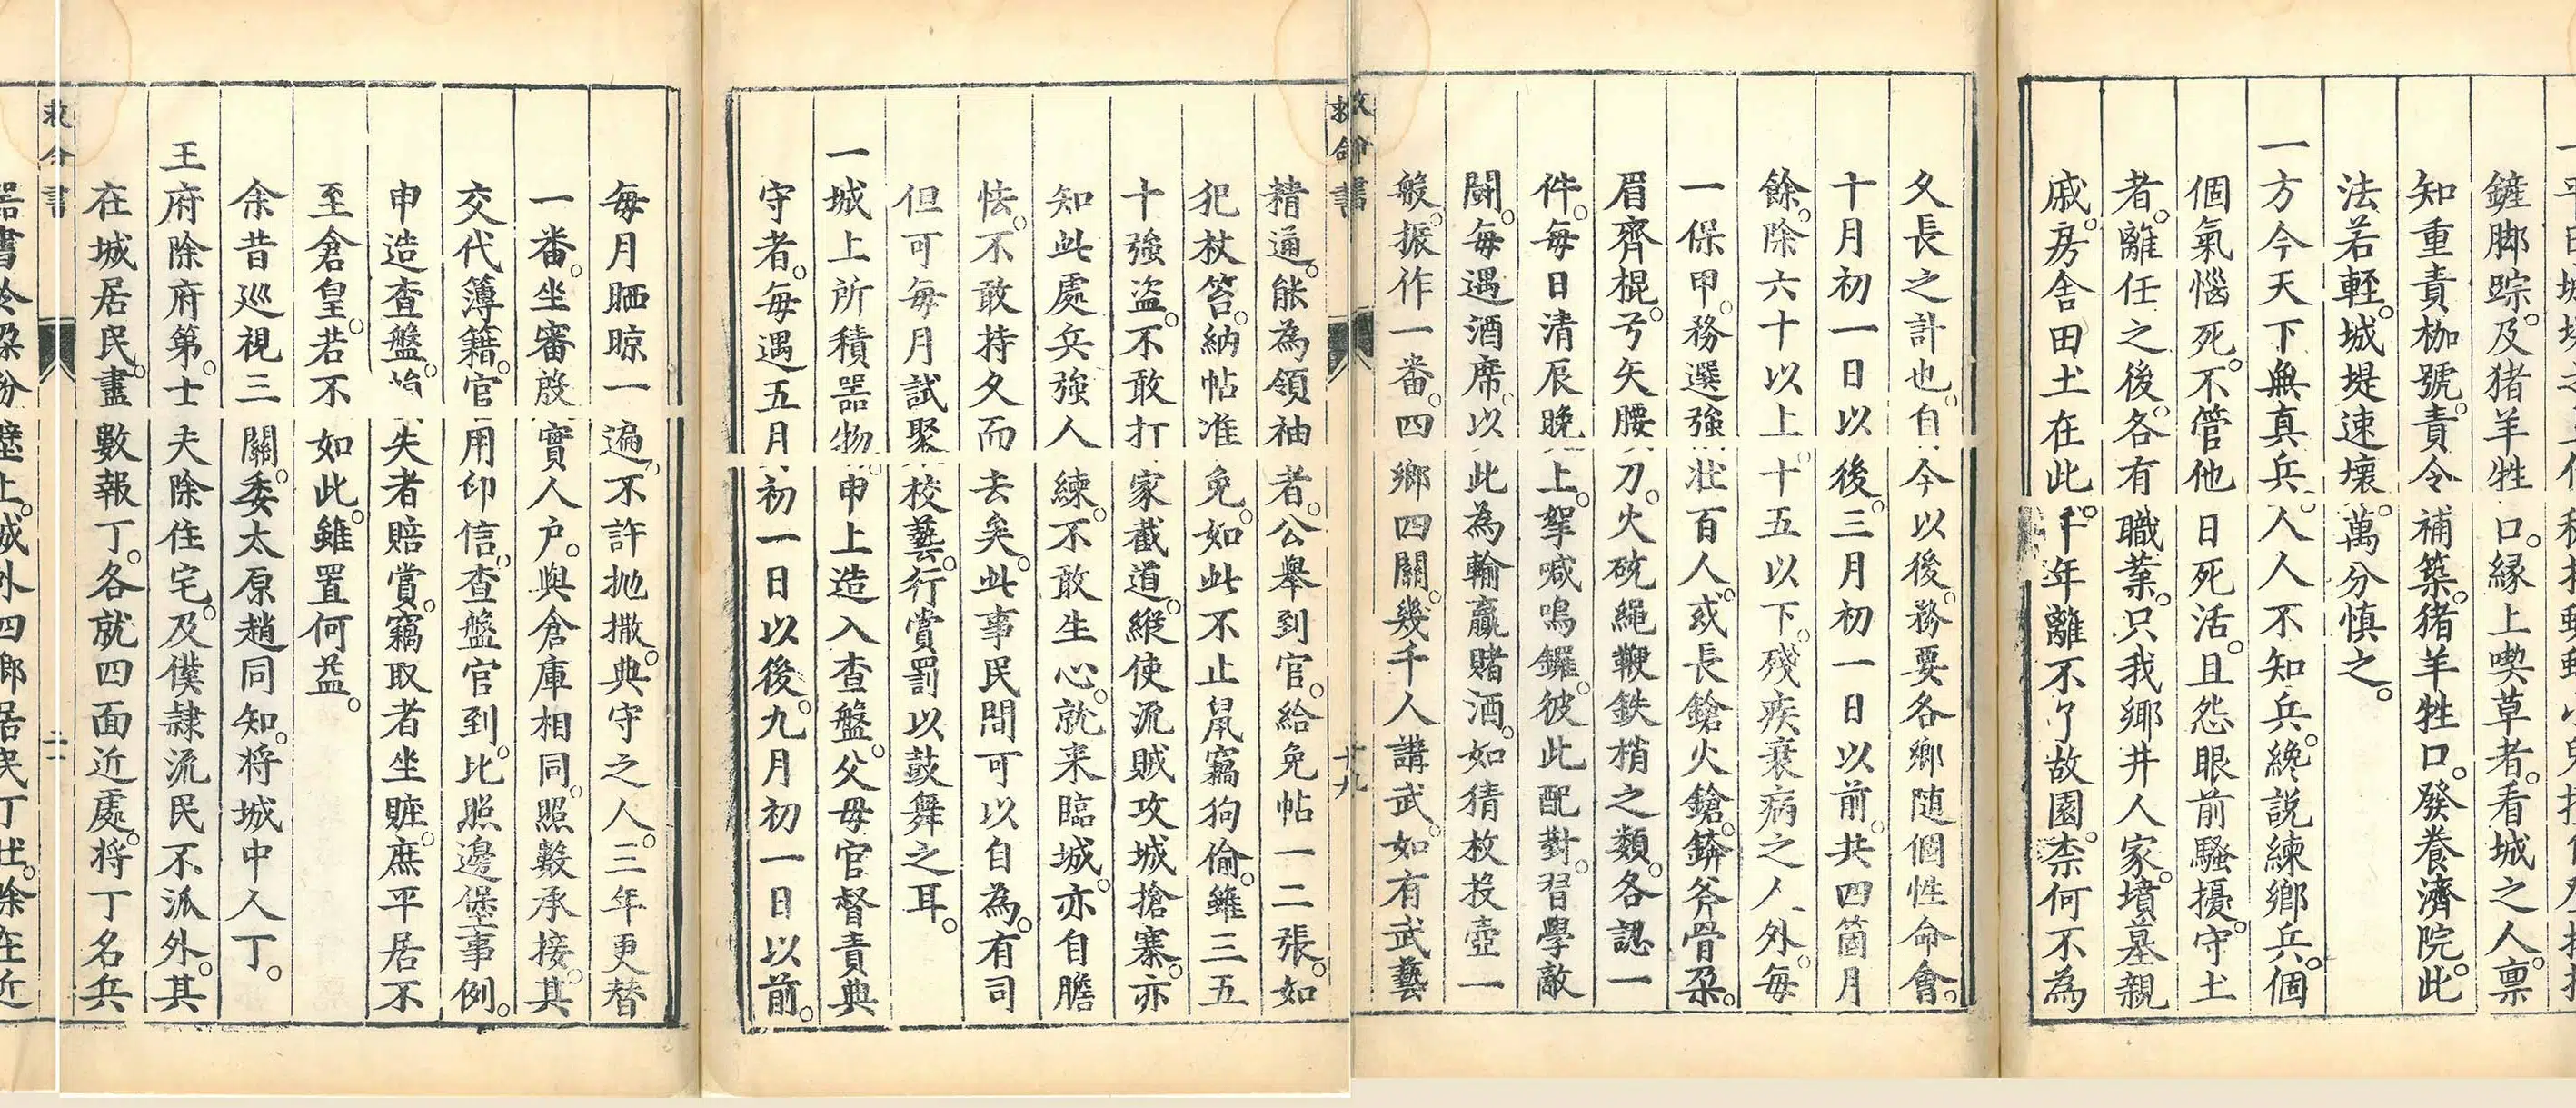 鏟脚踪。及猪羊牲口。縁上喫草者。看城之人。禀
知重責枷號。責令補築。猪羊牲口。發養濟院。此
法若輕。城堤速壞。萬分慎之。
一方今天下無真兵。人人不知兵。纔説練鄉兵。個
個氣惱死。不管他日死活。且怨眼前騷擾。守土
者。離任之後。各有職業。只我鄉井人家。墳墓親
戚。房舎田土在此。千年離不了故園。柰何不為
久長之計也。自今以後。務要各鄉随個性命會。
十月初一日以後。三月初一日以前。共四箇月
餘。除六十以上。十五以下。殘疾衰病之人外。每
一保甲。務選強壯百人。或長鎗火鎗。鎊斧骨朶。
眉齊棍。弓矢腰刀。火砲繩鞭鉄梢之類。各認一
件。每日清辰晚上。挐喊鳴鑼。彼此配對。習學敵
鬪。每遇酒席。以此為輸贏賭酒。如猜枚投壺一
般。振作一番。四鄉四關。幾千人講武。如有武藝
救命書
十九
精通。能為領袖者。公舉到官。給免帖一二張。如
犯杖笞。納帖准免。如此不止鼠竊狗偷。雖三五
十強盗。不敢打家截道。縱使流賊攻城搶寨。亦
知此處兵強人練。不敢生心。就来臨城。亦自膽
怯。不敢持久而去矣。此事民間可以自為。有司
但可每月試聚校藝。行賞罰以鼓舞之耳。
一城上所積噐物。申上造入查盤。父母官督責典
守者。每遇五月初一日以後。九月初一日以前。
每月晒晾一遍。不許抛撒。典守之人。三年更替
一番。坐審殷實人户。與倉庫相同。照數承接。其
交代簿籍。官用印信。查盤官到。比照邊堡事例。
申造查盤。損失者賠賞。竊取者坐賍。庶平居不
至倉皇。若不如此。雖置何益。
余昔廵視三關。委太原趙同知。将城中人丁。
王府除府第。士夫除住宅。及僕隷流民不派外。其
在城居民。盡數報丁。各就四面近處。将丁名兵
救命書